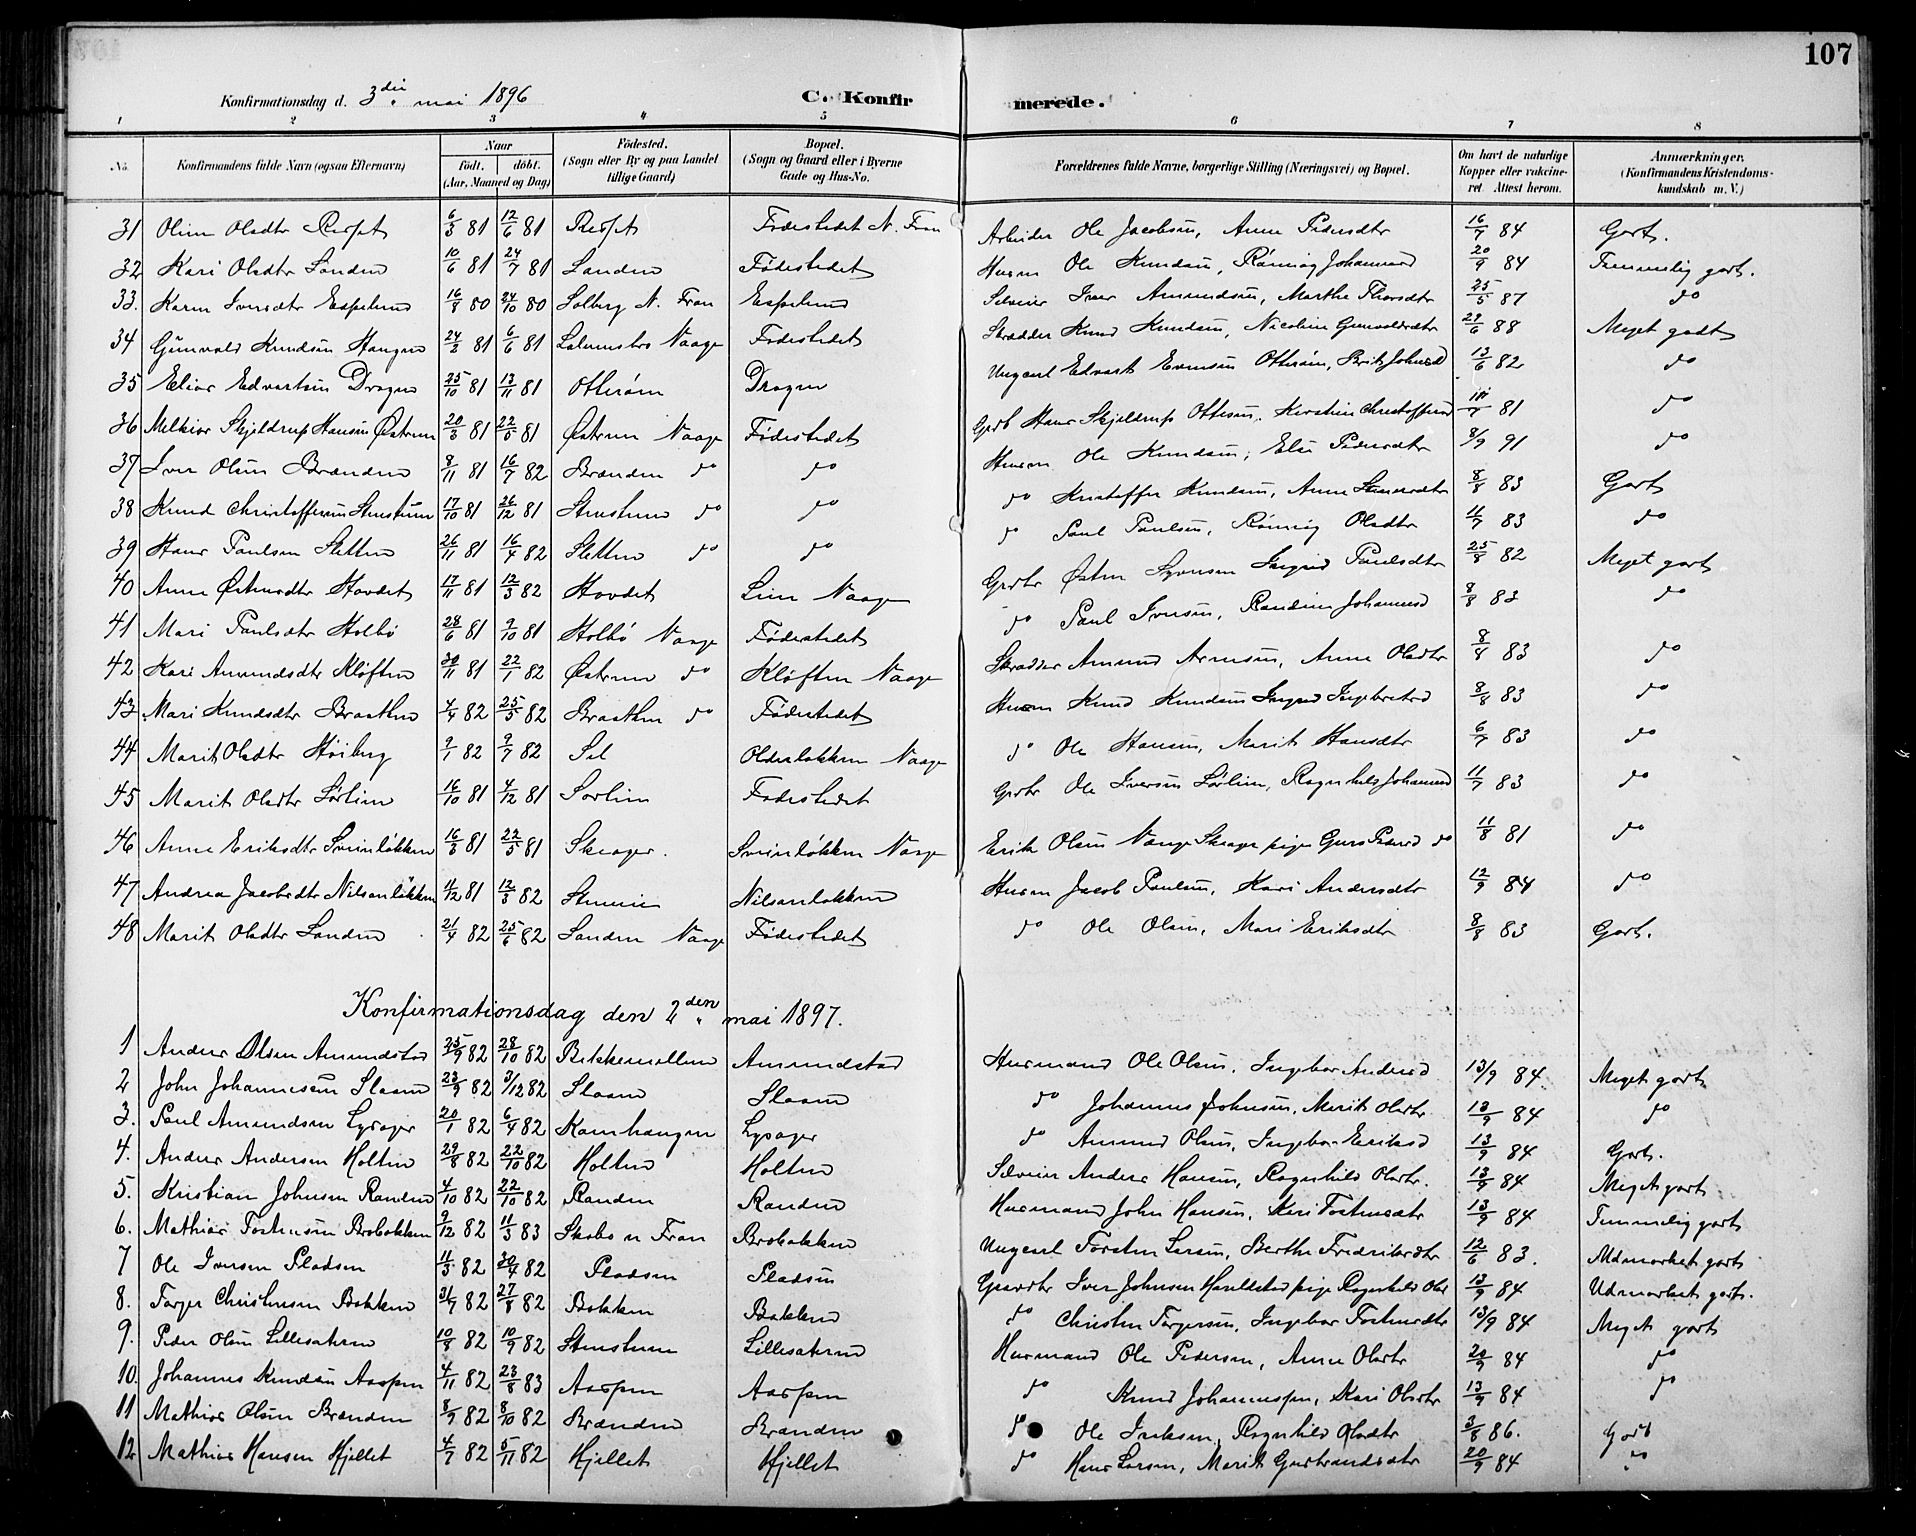 107
Konfirmationsdag d. 3die mai 1896 C. Konfir merede.
1 2 3 4 5 6 7 8
No. Konfirmandens fulde Navn (ogsaa Efternavn) Naar födt. döbt. (Aar, Maaned og Dag) Födested. (Sogn eller By og paa Landet tillige Gaard) Bopæl. (Sogn og Gaard eller i Byerne Gade og Hus-No. Forældrenes fulde Navne, borgerlige Stilling (Næringsvei) og Bopæl. Om havt de naturlige Kopper eller vakcineret. Attest herom. Anmærkninger. (Konfirmandens Kristendomskundskab m. V.)
31 Oldtr 6/3 81 12/6 81 Fødestedet N. Fron Arbeider Ole Jacobsen, Anne Pedersdtr 16/7 84 Godt.
32 Kari Olsdtr Sanden 10/6 81 24/7 81 Sanden Fødestedet Husm Ole Knudsen, Rønnög Johannesd 20/9 84 Temmelig godt.
33. Karen Iversdtr Espelund 16/8 80 24/10 80 Solberg N. Fron Espelund Selveier Iver Amundsen, Marthe Thorsdtr 25/5 87 do
34 Gunvald Knudsen Haugen 24/2 81 6/6 81 Vaage Fødestedet Skrædder Knud Knudsen, Nicoline Gunvaldsdtr 29/6 88 Meget godt
35 Elias Edvartsen Dragen 25/10 81 13/11 81 Otterøm Dragen Ungcarl Edvart Evensen Otterøm, Brit Johnsd 13/6 82 do
36 Melkior Skjeldrup Hansen Østrem 20/3 81 22/5 81 Østrem Vaage Fødestedet Grdb Hans Skjeldrup Ottesen, Kerstine Christoffersd 81 do
37 Iver Olsen Brænden 8/11 81 16/7 82 Brænden do do Husm Ole Knudsen, Else Pedersdtr 8/9 91 do
38 Knud Christoffersen Stenstuen 17/10 81 26/12 81 Stenstuen do do do Kristoffer Knudsen, Anne 8/8 83 Godt
39 Hans Paulsen Sletten 26/11 81 16/4 82 Sletten do do do Paul Paulsen, Rønnög Olsdtr 11/7 83 do
40 Anne Østensdtr Hovdet 17/11 81 12/3 82 Hovdet Vaage Grdbr Østen Syversen Ingrid Paulsdtr 25/8 82 Meget godt
41 Mari Paulsdtr Holbø 28/6 81 9/10 81 Holbø Vaage Fødestedet do Paul Iversen, Randine Johannesd 8/8 83 do
42 Kari Amundsdtr Kløften 30/11 81 22/1 82 Østrem do Kløften Vaage Skrædder Amund Arnesen, Anne Olsdtr 8/8 83 do
43 Mari Knudsdtr Braathen 4/4 82 25/5 82 Braathen do Fødestedet Husm Knud Knudsen Ingrid Ingebretsd 8/8 83 do
44 Marit Olsdtr Høiberg 9/1 82 9/7 82 Sel Olderløkken Vaage do Ole Hansen, Marit Hansdtr 6/7 83 do
45 Marit Olsdtr Sørlien 16/10 81 4/12 81 Sorlien Fødestedet Grdbr Ole Iversen Sørlien, Ragnhild Johannesd 11/7 83 do
46 Anne Eriksdtr Sveinløkken 16/3 81 22/5 81 Skeager. Sveinløkken Vaage Erik Olsen Vaage Skeager pige Guro do 11/8 81 do
47 Andrea Jacobsdtr Nilsanløkken 11/12 81 12/3 82 Nilsanløkken Husm Jacob Paulsen, Kari Andersdtr 12/9 84 do
48 Marit Olsdtr Sanden 21/4 82 25/6 82 Sanden Vaage Fødestedet do Ole Olsen, Mari Eriksdtr 8/8 83 Godt.
Konfirmationsdag den 2den mai 1897.
1 Anders Olsen Amundstad 25/9 82 28/10 82 Bekkemellem Amundstad Husmand Ole Olsen, Ingebor Andersd 13/9 84. Meget godt
2 John Johannesen Slaaen 23/9 82 3/12 82 Slaaen Slaaen do Johannes Johnsen, Marit Olsdtr 13/9 84 do
3. Paul Amundsen Lysager 20/1 82 6/4 82 Kamhaugen Lysager do Amund Olsen, Ingebor Eriksd 13/9 84 Godt.
4. Anders Andersen Holten 29/8 82 22/10 82 Holten Holten Selveier Anders Hansen, Ragnhild Olsdtr. 13/9 84 Meget godt
5. Kristian Johnsen Randen 4/10 82 22/10 82 Randen Randen Husmand John Hansen, Kari Fostensdtr 13/9 84 Temmelig godt
6. Mathias Torstensen Brobakken 9/12 82 11/3 83 Skabo n Fron Brobakken Ungcarl Torsten Larsen, Berthe Fredriksdtr 12/6 83. Udmærket godt
7 Ole Iversen Pladsen 11/3 82 30/4 82 Pladsen Pladsen Gaardbr Iver Johnsen pige Ragnhild Olsd 13/9 84 Udmærket godt.
8. Torger Christensen Bakken 31/7 82 27/8 82 Bakken Bakken do Christen Torgersen, Ingebor Fostensdtr 13/9 84 Meget godt
9. Peder Olsen Lillesæteren 10/8 82 10/9 82 Stenstuen Lillesæteren Husmand Ole Pedersen, Anne Olsdtr 20/9 84 do
10. Johannes Knudsen Aaspen 4/11 82 23/8 83 Aaspen Aaspen do Knud Johannessen, Kari Olsdtr 13/9 84 do
11 Mathias Olsen Brænden 8/9 82 8/10 82 Brænden Brænden do Ole Ragnhild Olsdtr 3/8 86. Godt
12 Mathias Hansen Hjellet 4/7 82 5/11 82 Hjellet Hjellet do Hans Larsen, Marit Gudbrandsdtr 20/9 84 "